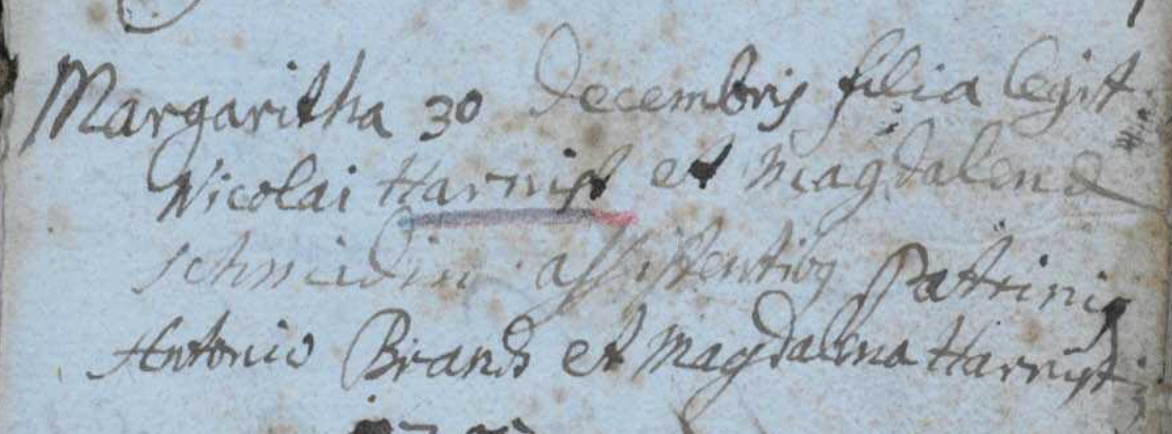 Margaritha 30 Decembris filia legit
Nicolai Harnist et Magdalena
schmidin assistentibus Patrinis
Antonio Brand et Magdalena Harnist